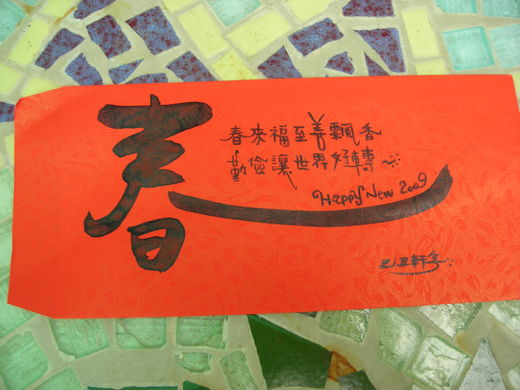 春
春來福至善飄香
勤儉讓世界好轉~
Happy New 2009
己丑軒字